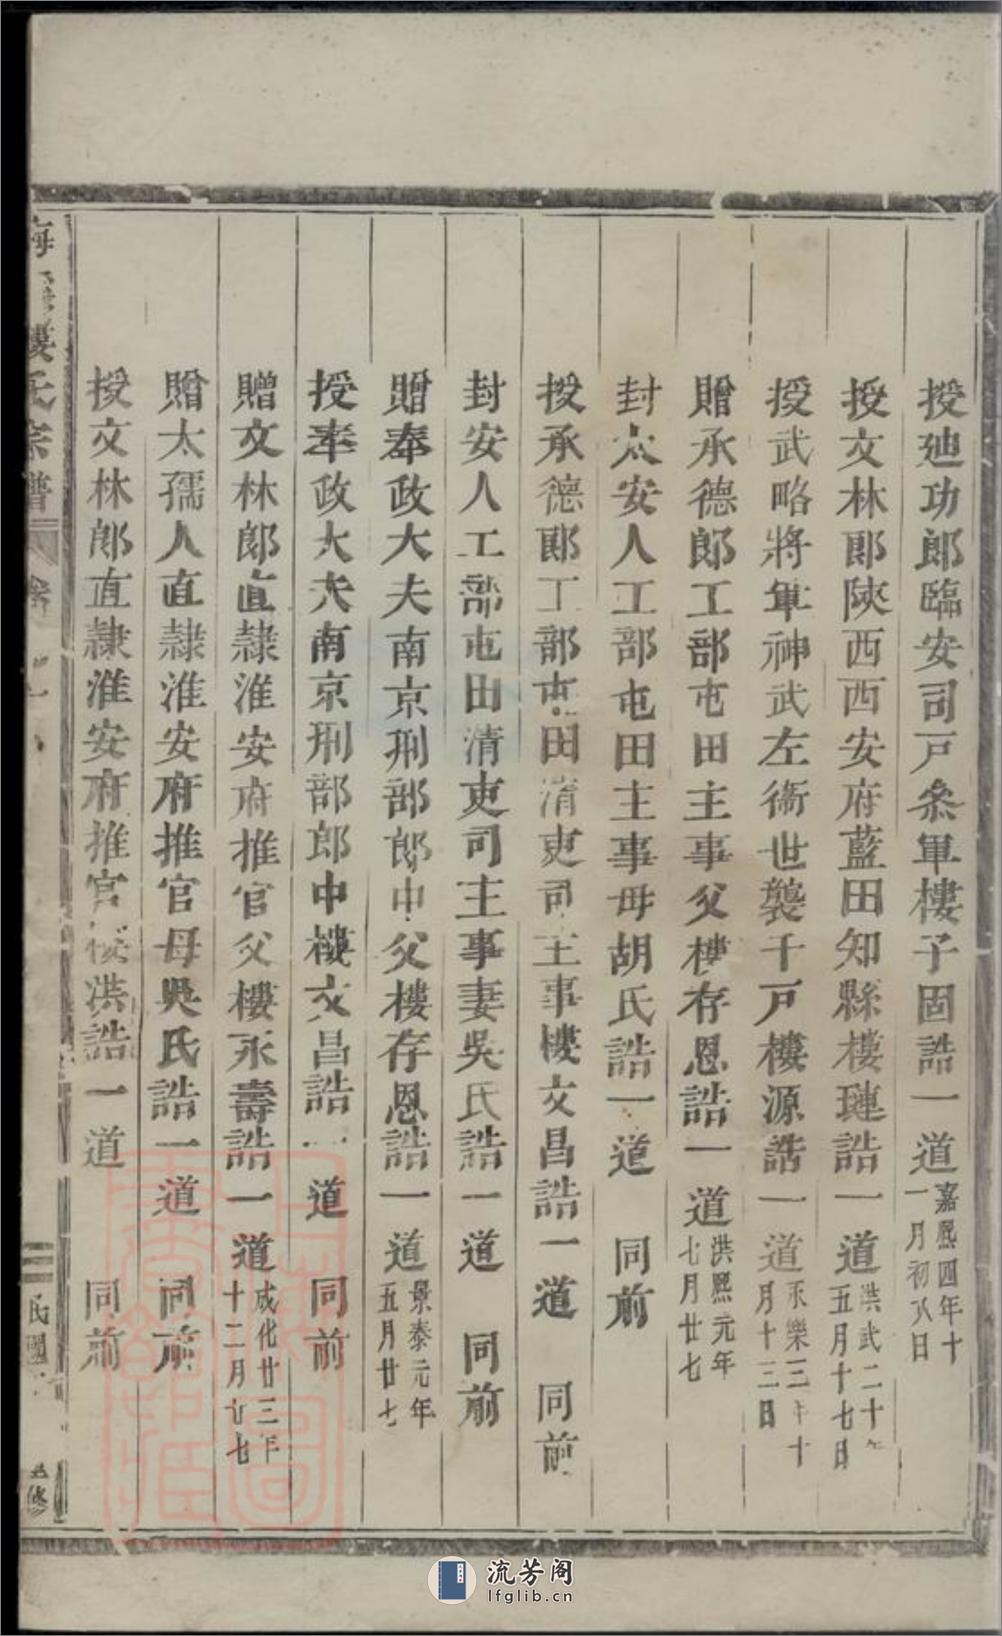 授廸功郎臨安司戸叅軍樓子固誥一道嘉熙四年十一月初八日
授文林郎陝西西安府藍田知縣樓璉誥一道洪武二十年五月十七日
授武略將軍神武左衛世襲千戸樓源誥一道永樂三年十月十二日
贈承德郎工部屯田主事父樓存恩誥一道洪熙元年七月廿七
封太安人工部屯田主事母胡氏誥一道 同前
授承德郎工部屯田清吏司主事樓文昌誥一道 同前
封安人工部屯田清吏司主事妻吳氏誥一道 同前
贈奉政大夫南京刑部郎中父樓存恩誥一道景泰元年五月廿七
授奉政大夫南京刑部郎中樓文昌誥一道 同前
贈文林郎直隷淮安府推官父樓永壽誥一道成化廿三年十二月廿七
贈太孺人直隷淮安府推官母吳氏誥一道 同前
授文林郎直隷淮安府推官樓洪誥一道 同前
樓氏宗譜 卷 民國 修
流芳阁
lfglib.cn